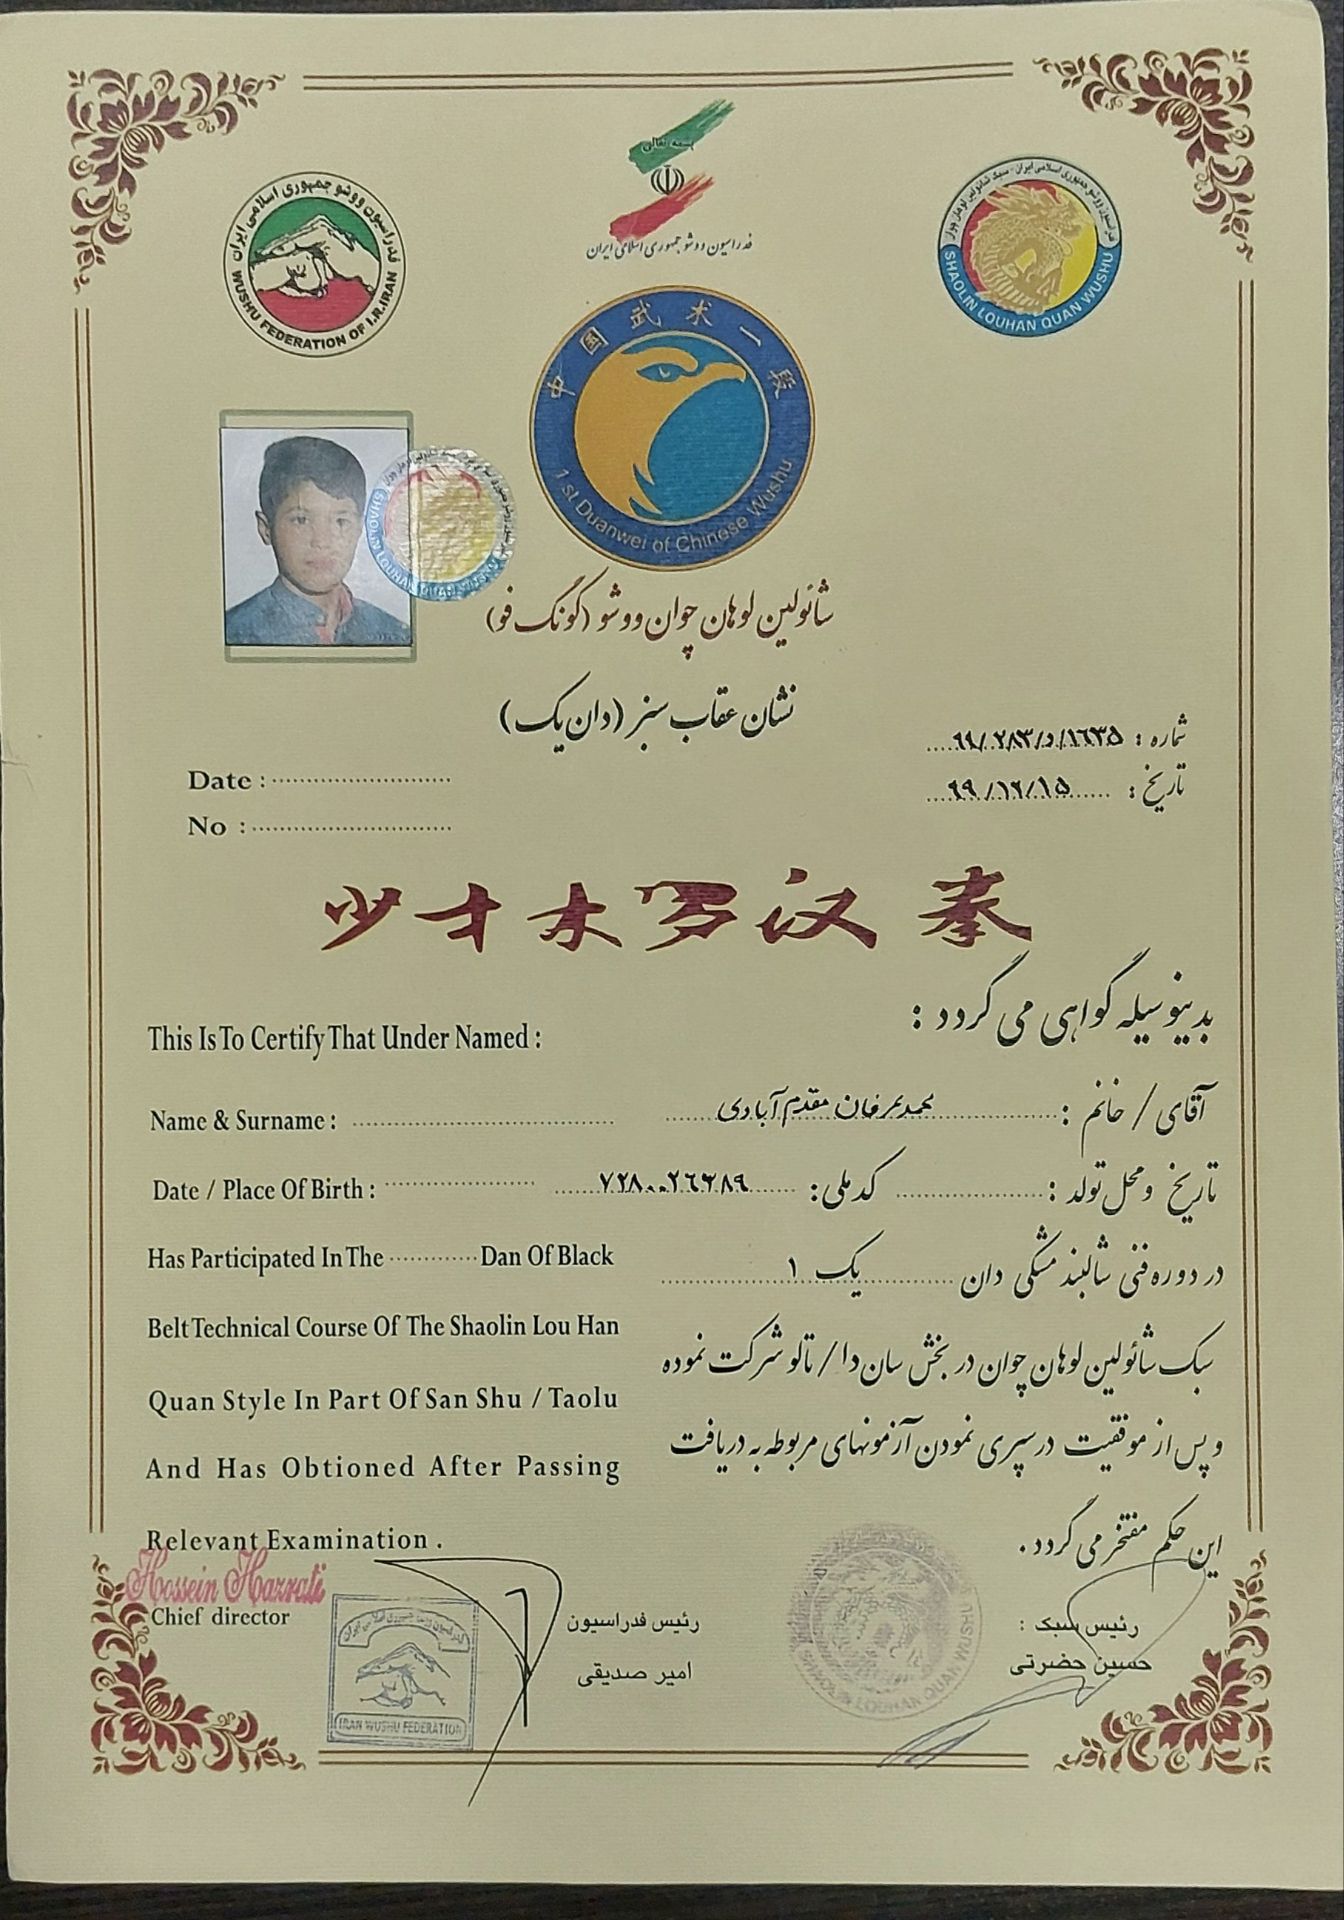 بسمه تعالی
فدراسیون ووشو جمهوری اسلامی ایران
فدراسیون ووشو جمهوری اسلامی ایران
WUSHU FEDERATION OF I.R.IRAN
فدراسیون ووشو جمهوری اسلامی ایران - سبک شائولین لوهان چوان
SHAOLIN LOUHAN QUAN WUSHU
中国武术一段
1 st Duanwei of Chinese Wushu
SHAOLIN LOUHAN QUAN WUSHU
شائولین لوهان چوان ووشو (کونگ فو)
نشان عقاب سبز (دان یک)
شماره : ۹۹/۲۸۳/د/۱۶۳۵
Date :
تاریخ : ۹۹/۱۲/۱۵
No :
少林罗汉拳
بدینوسیله گواهی می گردد :
This Is To Certify That Under Named :
آقای / خانم : محمدعرفان مقدم آبادی
Name & Surname :
تاریخ و محل تولد : کد ملی: ۷۲۸۰۰۲۶۳۸۹
Date / Place Of Birth :
در دوره فنی شالبند مشکی دان یک ۱
Has Participated In The Dan Of Black
سبک شائولین لوهان چوان در بخش ساندا / تالو شرکت نموده
Belt Technical Course Of The Shaolin Lou Han
Quan Style In Part Of San Shu / Taolu
و پس از موفقیت در سپری نمودن آزمونهای مربوطه به دریافت
And Has Obtioned After Passing
این حکم مفتخر می گردد .
Relevant Examination .
Hossein Hazrati
Chief director
رئیس فدراسیون
امیر صدیقی
رئیس سبک :
حسین حضرتی
فدراسیون ووشو جمهوری اسلامی ایران
IRAN WUSHU FEDERATION
SHAOLIN LOUHAN QUAN WUSHU